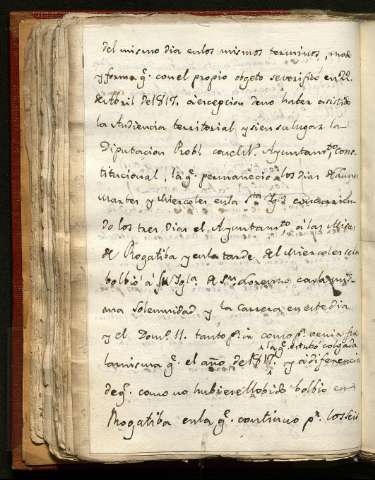 del mismo dia en los mismos terminos, mod
y forma q.e con el propio objeto se verifico en 22
de Abril del 817. a excepcion de no haber asistido
la Audiencia territorial, y si en su lugar la
Diputacion Prob.l con el Il.e Ayuntam.to Cons
titucional, la q.e permanecio los dias de Lunes
Martes y Miercoles en la S.ta Ig.a concurrien
do los tres dias el Ayuntam.to a las Misas
de Rogatiba y en la tarde del Miercoles se la
bolbio á su Ygl.a de con la mis
ma solemnidad, y la Carrera en este dia
y el Dom.o 11. tanto p.a ir a como p.a venir fue
la misma q.e el año de 1817. y a diferencia
a la q.e estubo colgada
de q.e como no hubiere llobido bolbio en
Rogatiba en la q.e continuo p.r los seis